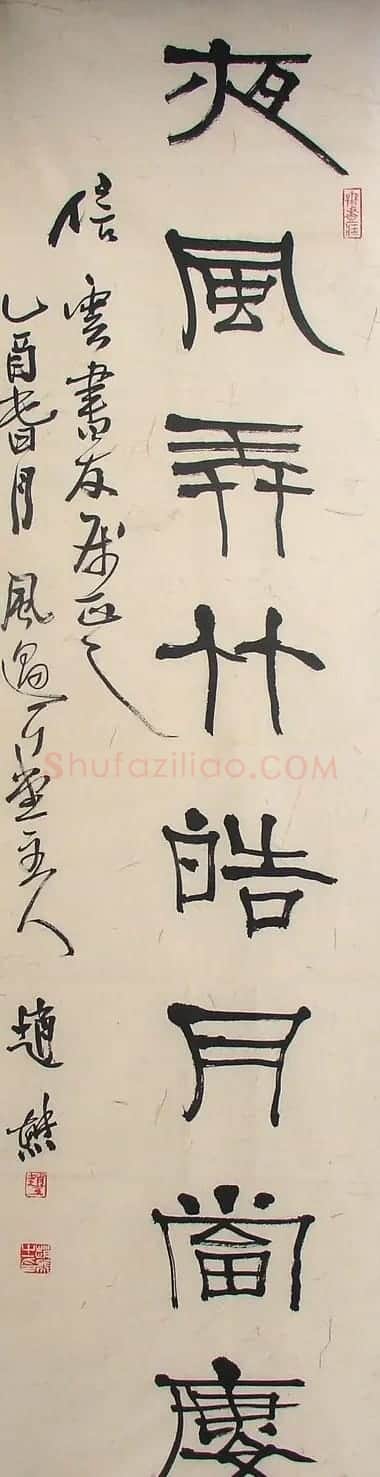 夜風弄竹皓月當
信雲書友屬正之
乙酉月 風過耳堂主人 趙熊
Shufaziliao.COM